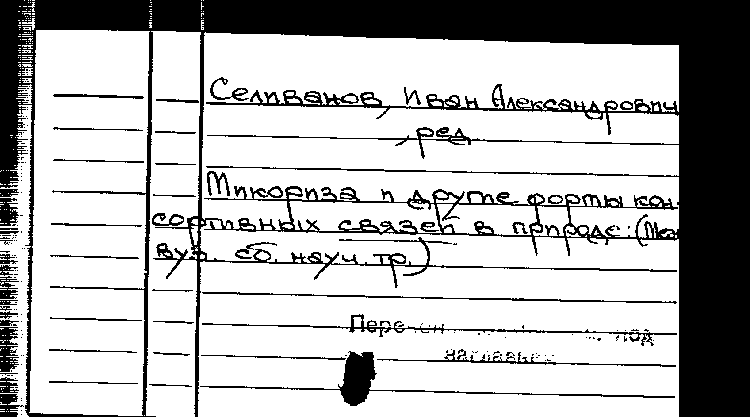 Селиванов, Иван Александрович
, ред.
Микориза и другие формы кон-
сортивных связей в природе: (Меж
вуз. сб. науч. тр.)
под
заглавием